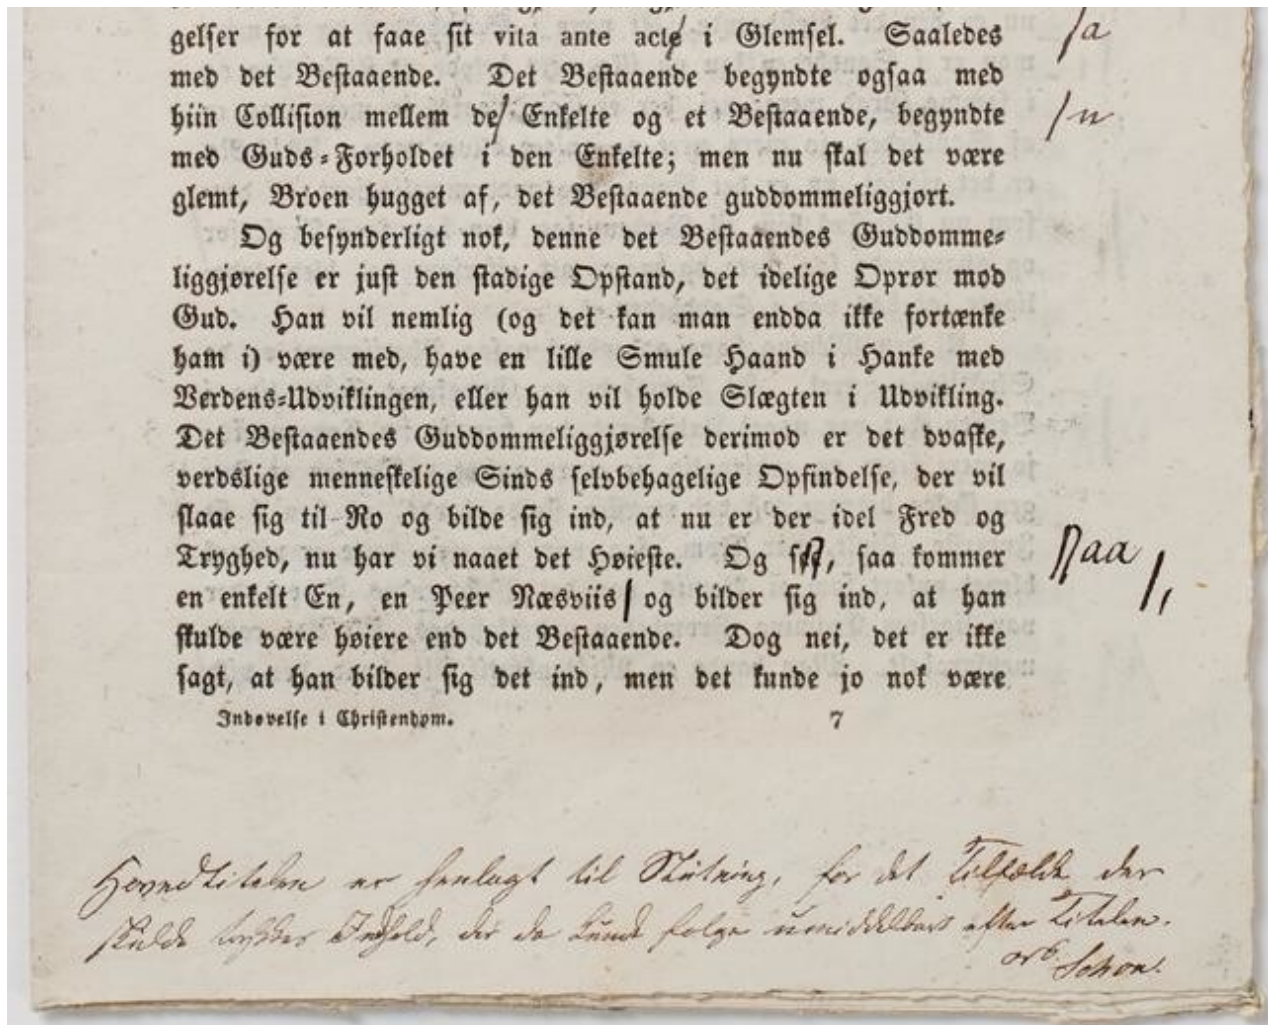 gelser for at faae sit vita ante acte i Glemsel. Saaledes /a
med det Bestaaende. Det Bestaaende begyndte ogsaa med
hiin Collision mellem de Enkelte og et Bestaaende, begyndte /n
med Guds-Forholdet i den Enkelte; men nu skal det være
glemt, Broen hugget af, det Bestaaende guddommeliggjort.
Og besynderligt nok, denne det Bestaaendes Guddomme-
liggjørelse er just den stadige Opstand, det idelige Oprør mod
Gud. Han vil nemlig (og det kan man endda ikke fortænke
ham i) være med, have en lille Smule Haand i Hanke med
Verdens-Udviklingen, eller han vil holde Slægten i Udvikling.
Det Bestaaendes Guddommeliggjørelse derimod er det dvaske,
verdslige menneskelige Sinds selvbehagelige Opfindelse, der vil
slaae sig til Ro og bilde sig ind, at nu er der idel Fred og
Tryghed, nu har vi naaet det Høieste. Og , saa kommer aa
en enkelt En, en Peer Næsviis og bilder sig ind, at han /,
skulde være høiere end det Bestaaende. Dog nei, det er ikke
sagt, at han bilder sig det ind, men det kunde jo nok være
Indøvelse i Christendom. 7
Hovedtitelen er henlagt til Slutning, for det Tilfælde der
skulde trykkes Indhold, der da kunde følge umiddelbart efter Titelen.